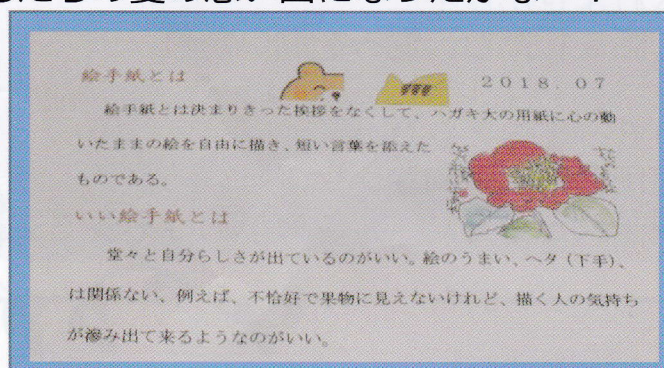 絵手紙とは
2018.07
絵手紙とは決まりきった挨拶をなくして、ハガキ大の用紙に心の動
いたままの絵を自由に描き、短い言葉を添えた
ものである。
いい絵手紙とは
堂々と自分らしさが出ているのがいい。絵のうまい、ヘタ(下手)、
は関係ない、例えば、不恰好で果物に見えないけれど、描く人の気持ち
が滲み出て来るようなのがいい。